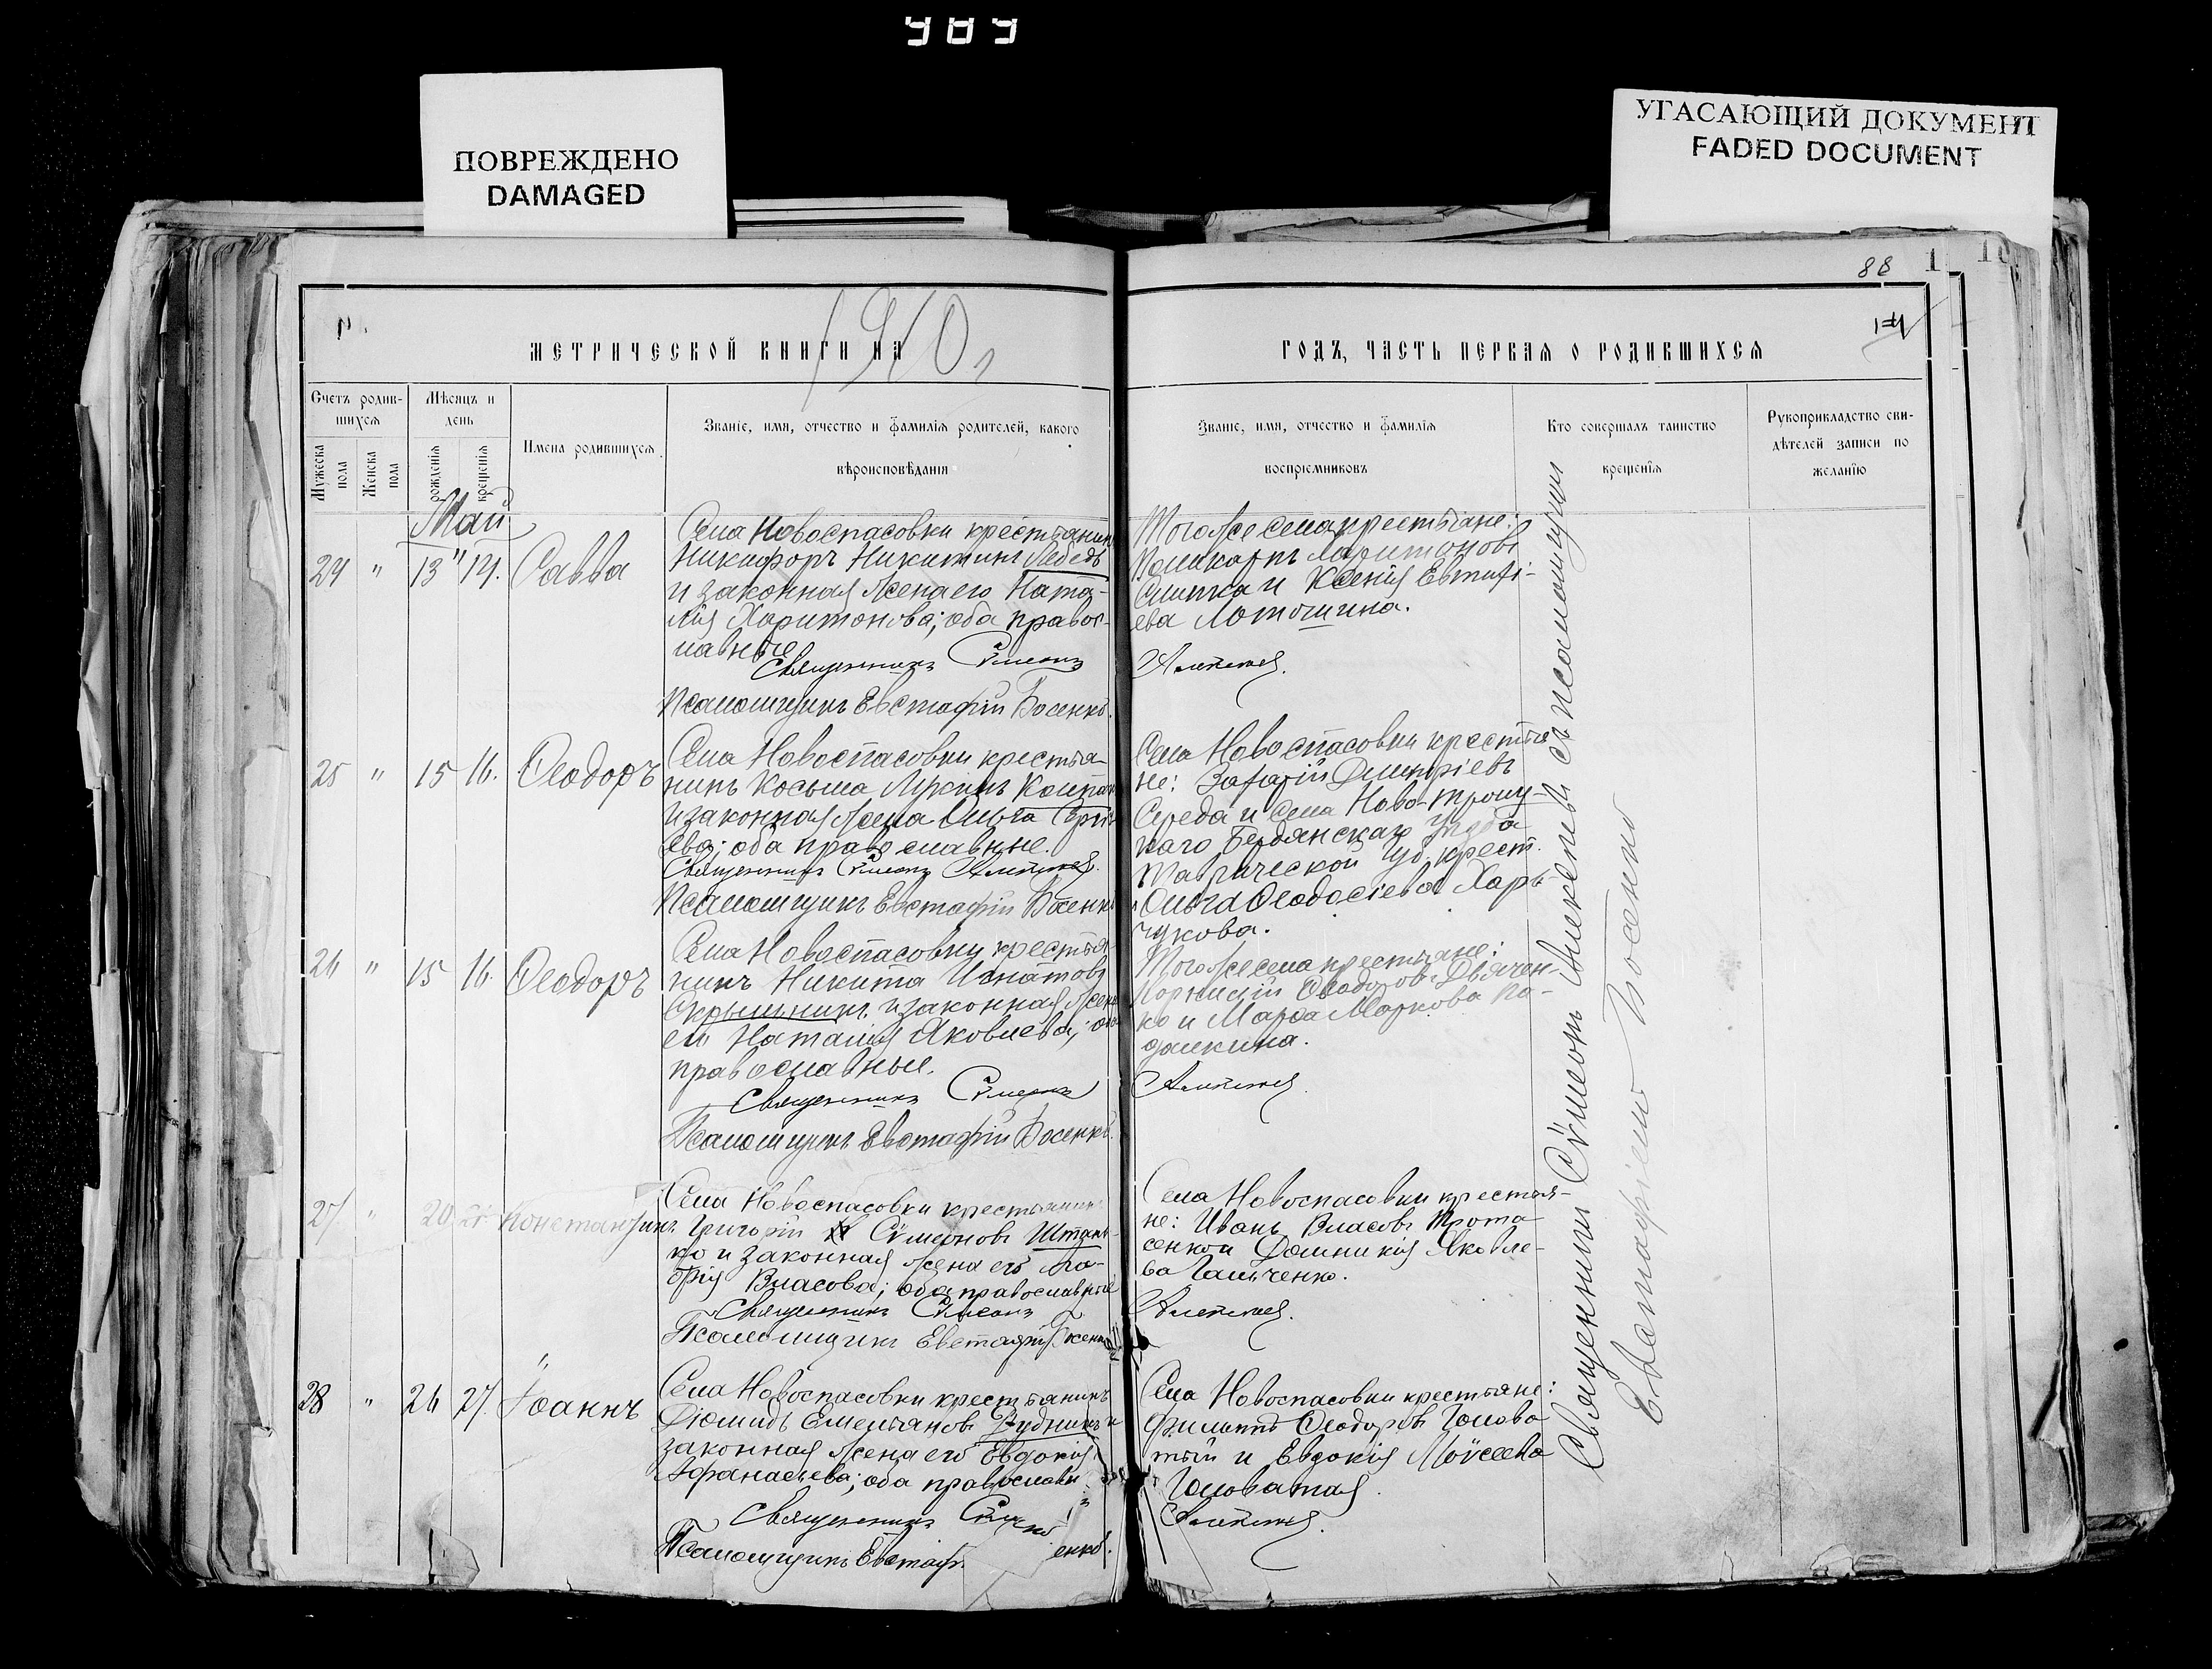 989
ПОВРЕЖДЕНО
DAMAGED
УГАСАЮЩИЙ ДОКУМЕНТ
FADED DOCUMENT
88
МЕТРИЧЕСКОЙ КНИГИ НА 1910
ГОДЪ, ЧАСТЬ ПЕРВАЯ О РОДИВШИХСЯ
Счетъ родив-
шихся
Мужеска
пола
Женска
пола
Мѣсяцъ и
день
рожденія
крещенія
Имена родившихся.
Званіе, имя, отчество и фамилія родителей, какого
вѣроисповѣданія
Званіе, имя, отчество и фамилія
воспріемниковъ
Кто совершалъ таинство
крещенія
Рукоприкладство сви-
дѣтелей записи по
желанію
Май
24 " 13 " 14. Савва
Села Новоспасовки крестьянин
Никифоръ Никитинъ Лебедь
и законная жена его Ната-
лія Харитонова; оба правос-
лавные
Священникъ Сѵмеонъ
Псаломщикъ Евстафій Босенко.
Того же села крестьяне:
Поликарпъ Харитоновъ
Слипка и Ксенія Евтихі-
ева Лотошина.
25 " 15 16. Ѳеодоръ
Села Новоспасовки крестья-
нинъ Косьма Лукинъ
и законная жена Ольга
ева; оба православные.
Священникъ Сѵмеонъ
Псаломщикъ Евстафій Босенко
Села Новоспасовки крестья
не: Захарій Димитріевъ
Середа и села Ново-Троиц-
каго Бердянскаго Уѣзда
Таврической Губ. крест.
Ольга Ѳеодосіева Харь
чукова.
26 " 15 16. Ѳеодоръ
Села Новоспасовки крестья-
нинъ Никита Игнатовъ
Скрыльникъ и законная жена
его Наталія Яковлева; оба
православные.
Священникъ Сѵмеонъ
Псаломщикъ Евстафій Босенко.
Того же села крестьяне:
Корнилій Ѳеодоровъ Дьячен-
ко и Марѳа Маркова
27 " 20 21. Константинъ
Села Новоспасовки крестьянинъ
Григорій Сѵмеоновъ Штань-
ко и законная жена его Ма-
рія Власова; оба православные
Священникъ Сѵмеонъ
Псаломщикъ Евстафій Босенко
Села Новоспасовки крестья-
не: Иванъ Власовъ Прота-
сенко и Домникія Яковле-
ва Гальченко.
28 " 26 27. Іоаннъ
Села Новоспасовки крестьянинъ
Діомидъ Емельяновъ Зубникъ и
законная жена его Евдокія
Аѳанасьева; оба православн
Священникъ
Псаломщикъ Евстаф енко.
Села Новоспасовки крестьяне:
Филиппъ Ѳеодоровъ Голова-
тый и Евдокія Моѵсеева
Головатая.
Священникъ Сѵмеонъ съ псаломщикомъ
Евстафіемъ Босенко